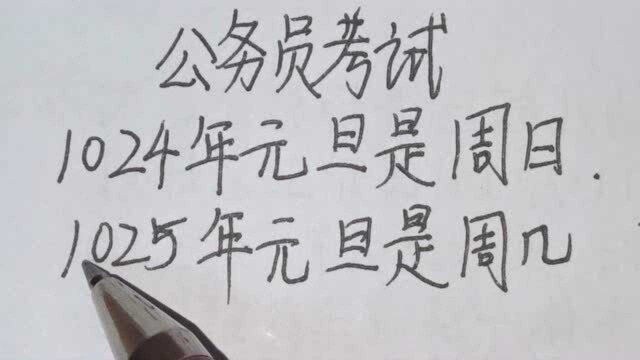 公务员考试
1024年元旦是周日.
1025年元旦是周几